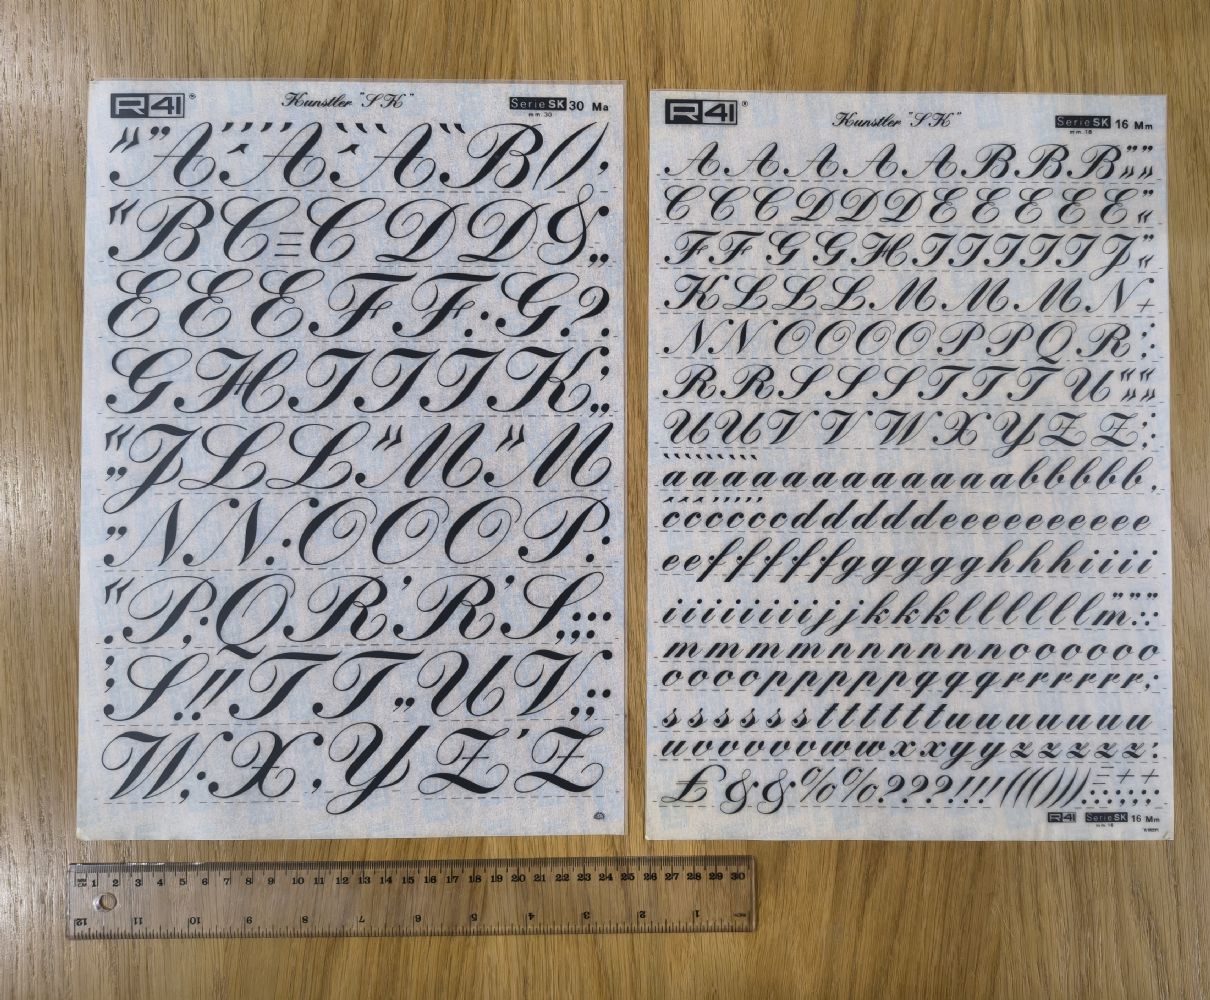 R41®
Kunstler "SK"
Serie SK 30 Ma
mm. 30
» ” A ’ ’ ’ ’ A ‘ ‘ ‘ A ‘ ‘ B ( ) ’
“ B C C D D & :
E E E F F : G ? :
G H I I I K ’ „
“ ” J L L » M » M
” N N : O O O P :
“ . P ; Q R ’ R ’ S , ; : :
; S ! ! T T „ U V ; :
W ; X ; Y Z ’ Z
R41®
Kunstler "SK"
Serie SK 16 Mm
mm. 16
A A A A A B B B
C C C D D D E E E E E E
F F G G H I I I I I J
K L L L M M M N +
N N O O O O P P Q R :
R R S S S T T T U
U U V V W X Y Z Z ;
a a a a a a a a a a a a b b b b b ,
c c c c c c d d d d d e e e e e e e e e e
e e f f f f f g g g g g h h h i i i i
i i i i i i i j j k k k l l l l l l l m
m m m m m n n n n n n n o o o o o o
o o o o p p p p p p q q q r r r r r r , :
s s s s s s t t t t t t u u u u u u u
u v v v v v w w x x y y z z z z z :
£ & & % % ? ? ? ! ! ! ( ( ( ) ) ) = + +
R41 Serie SK 16 Mm
mm. 16
1 2 3 4 5 6 7 8 9 10 11 12 13 14 15 16 17 18 19 20 21 22 23 24 25 26 27 28 29 30
12 11 10 9 8 7 6 5 4 3 2 1